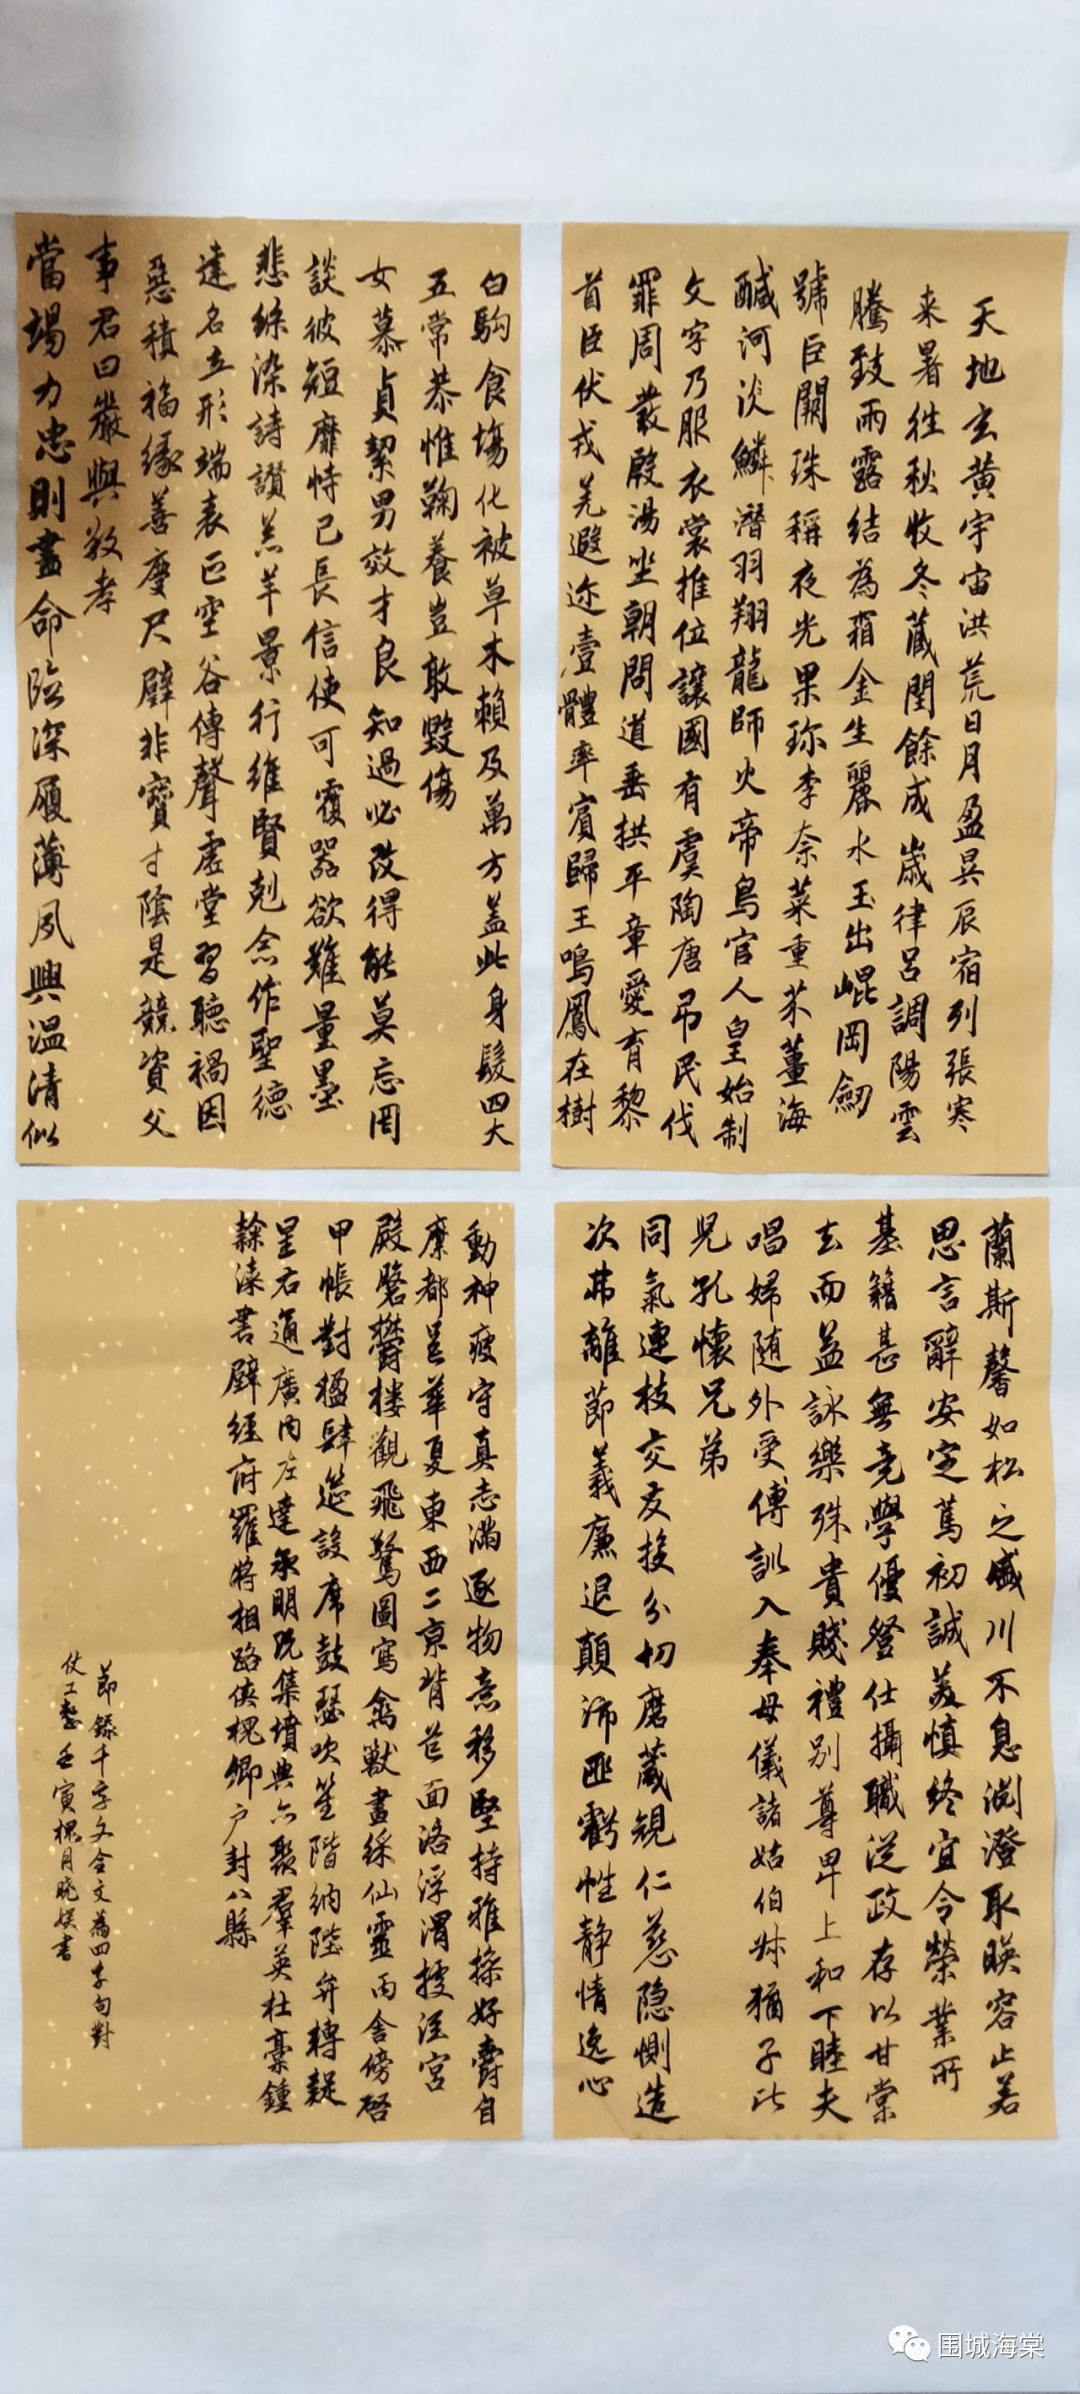 天地玄黄宇宙洪荒日月盈昃辰宿列張寒
来暑往秋收冬蔵閏餘成歲律呂調陽雲
騰致雨露結為霜金生麗水玉出崐岡劒
號巨闕珠稱夜光果珎李奈菜重芥薑海
鹹河淡鱗潛羽翔龍師火帝鳥官人皇始制
文字乃服衣裳推位讓國有虞陶唐吊民伐
罪周發殷湯坐朝問道垂拱平章愛育黎
首臣伏戎羌遐迩壹體率賓歸王鳴鳳在樹
白駒食場化被草木賴及萬方盖此身髮四大
五常恭惟鞠養豈敢毀傷
女慕貞絜男效才良知過必改得能莫忘罔
談彼短靡恃己長信使可覆器欲難量墨
悲絲染詩讃羔羊景行維賢剋念作聖德
達名立形端表正空谷傳聲虛堂習聽禍因
惡積福緣善慶尺璧非寶寸陰是競資父
事君曰嚴與敬孝
當竭力忠則盡命臨深履薄夙興温清似
蘭斯馨如松之盛川不息渕澄取暎容止若
思言辭安定篤初誠美慎終宜令榮業所
基籍甚無竟學優登仕攝職從政存以甘棠
去而益詠樂殊貴賤禮別尊卑上和下睦夫
唱婦随外受傅訓入奉母儀諸姑伯叔猶子比
兒孔懷兄弟
同氣連枝交友投分切磨箴規仁慈隐惻造
次弗離節義廉退顛沛匪虧性静情逸心
動神疲守真志滿逐物意移堅持雅操好爵自
縻都邑華夏東西二京背芒面洛浮渭據涇宮
殿磐鬱樓觀飛驚圖寫禽獸畫綵仙靈丙舍傍啓
甲帳對楹肆筵設席鼓瑟吹笙階納陛弁轉疑
星右通廣内左達承明既集墳典亦聚羣英杜稾鍾
隸漆書壁經府羅將相路俠槐卿户封八縣
節錄千字文全文為四字句對
仗工整壬寅槐月晓娱書
围城海棠